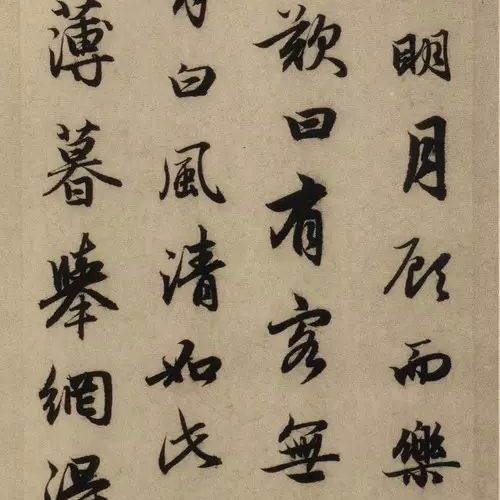 明月顧而樂
歎曰有客無
白風清如此
薄暮舉網得